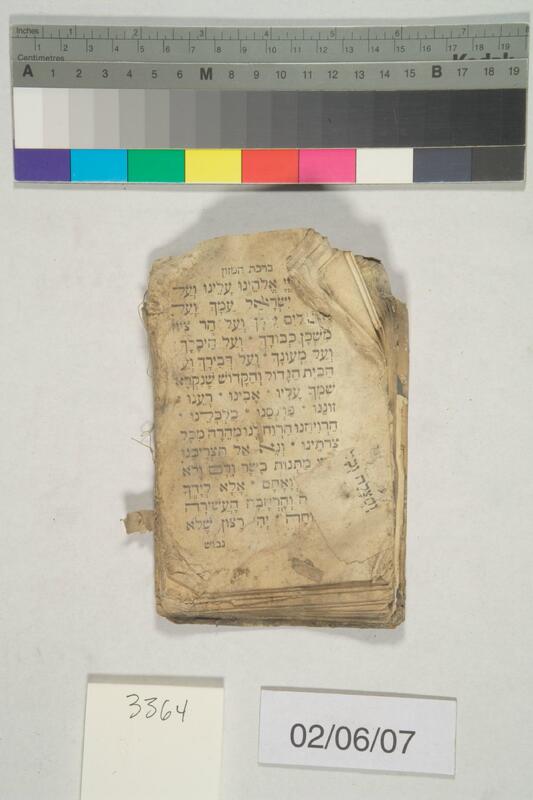 Inches 1 2 3 4 5 6 7 8
Centimetres 1 2 3 4 5 6 7 8 9 10 11 12 13 14 15 16 17 18 19
Kodak
A 1 2 3 4 5 6 M 8 9 10 11 12 13 14 15 B 17 18 19
ברכת המזון
אֱלֹהֵינוּ עָלֵינוּ וְעַל
יִשְׂרָאֵל עַמְּךָ וְעַל
וְעַל הַר צִיּוֹן
מִשְׁכַּן כְּבוֹדֶךָ · וְעַל הֵיכָלֶךָ
וְעַל מְעוֹנֶךָ · וְעַל דְּבִירֶךָ
הַבַּיִת הַגָּדוֹל וְהַקָּדוֹשׁ שֶׁנִּקְרָא
שִׁמְךָ עָלָיו · אָבִינוּ · רְעֵנוּ
זוּנֵנוּ · פַּרְנְסֵנוּ · כַּלְכְּלֵנוּ ·
הַרְוִיחֵנוּ הַרְוַח לָנוּ מְהֵרָה מִכָּל
צָרֹתֵינוּ · וְנָא אַל תַּצְרִיכֵנוּ
מַתְּנוֹת בָּשָׂר וָדָם וְלֹא
אֶלָּא לְיָדְךָ
וְהָרְחָבָה הָעֲשִׁירָה
יְהִי רָצוֹן שֶׁלֹּא
נבוש
וְהַצָּלָה
3364
02/06/07